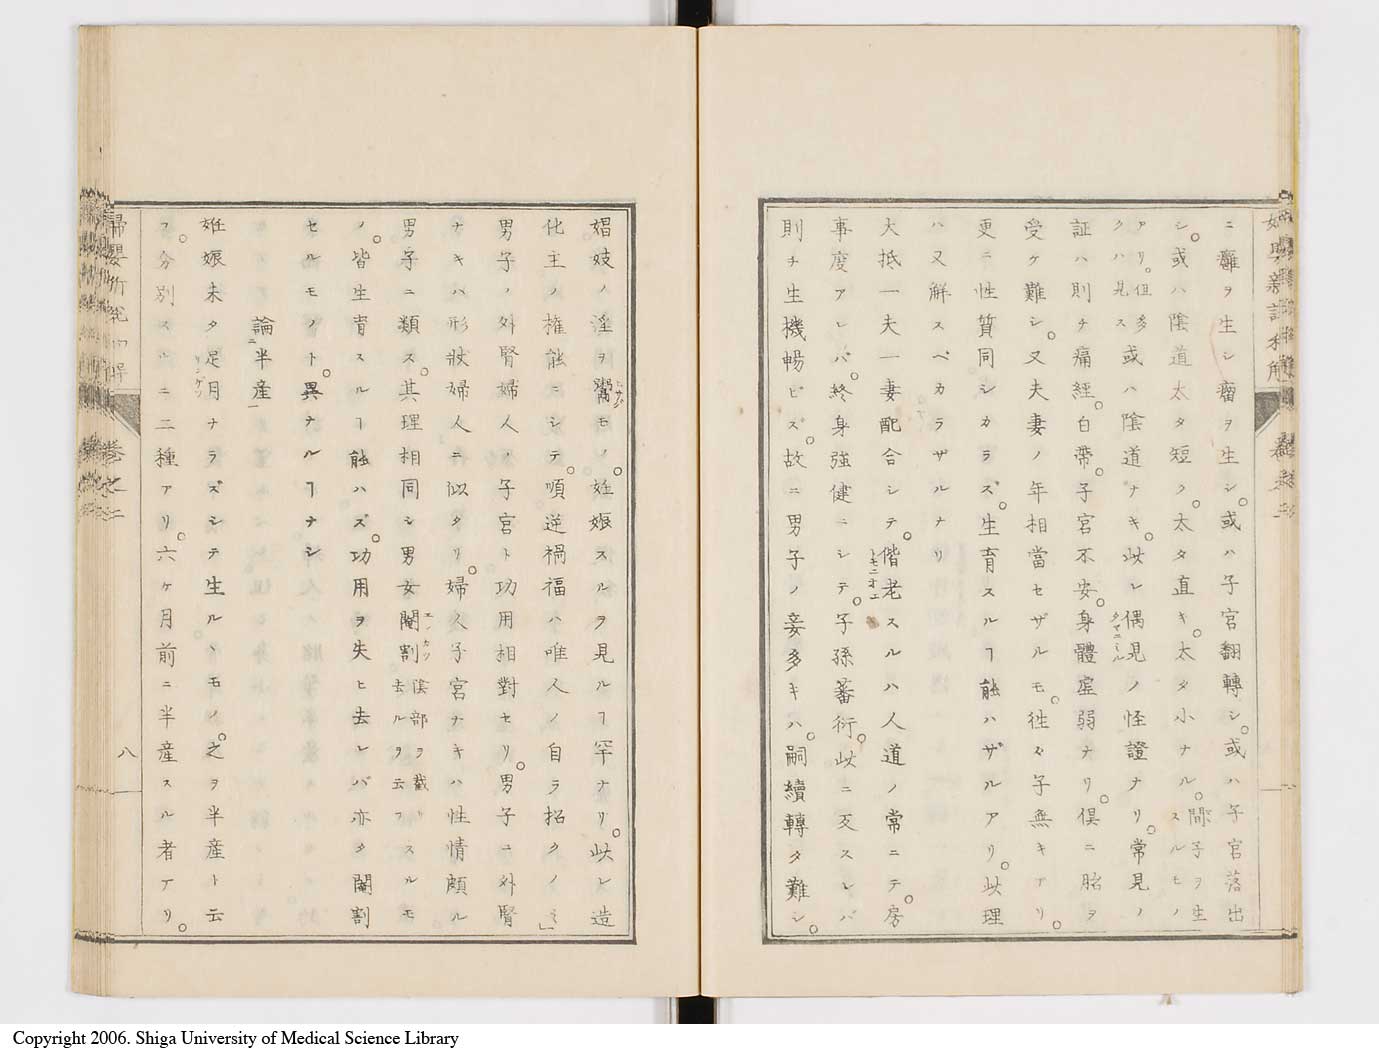 ニ離ヲ生シ瘤ヲ生シ。或ハ子宮翻轉シ。或ハ子宮落出
シ。或ハ陰道太タ短ク。太タ直キ。太タ小ナル。間子ヲ生スルモノ
アリ。但多クハ見ス或ハ陰道ナキ。此レ偶見ノ怪證ナリ。常見ノ
証ハ則チ痛經。白帶。子宮不安。身體虛弱ナリ。俱ニ胎ヲ
受ケ難シ。又夫妻ノ年相當セザルモ。徃々子無キアリ。
更ニ性質同シカラズ。生育スルヿ能ハザルアリ。此理
ハ又解スベカラザルナリ
大抵一夫一妻配合シテ。偕老スルハ人道ノ常ニテ。房
事度アレバ。終身強健ニシテ。子孫蕃衍。此ニ反スレバ
則チ生機暢ビズ。故ニ男子ノ妾多キハ。嗣續轉タ難シ。
娼妓ノ淫ヲ鬻モノ。妊娠スルヲ見ルヿ罕ナリ。此レ造
化主ノ權能ニシテ。順逆禍福ハ唯人ノ自ラ招クノミ」
男子ノ外腎婦人ノ子宮ト功用相對セリ。男子ニ外腎
ナキハ形狀婦人ニ似タリ。婦人子宮ナキハ性情頗ル
男子ニ類ス。其理相同シ男女閹割陰部ヲ截去ルヲ云フスルモ
ノ。皆生育スルヿ能ハズ。功用ヲ失ヒ去レバ亦タ閹割
セルモノト異ナルヿナシ
論半産
妊娠未タ足月ナラズシテ生ルヽモノ。之ヲ半産ト云
フ。分別スルニ二種アリ。六ケ月前ニ半産スル者アリ。
卷之二
八
Copyright 2006. Shiga University of Medical Science Library